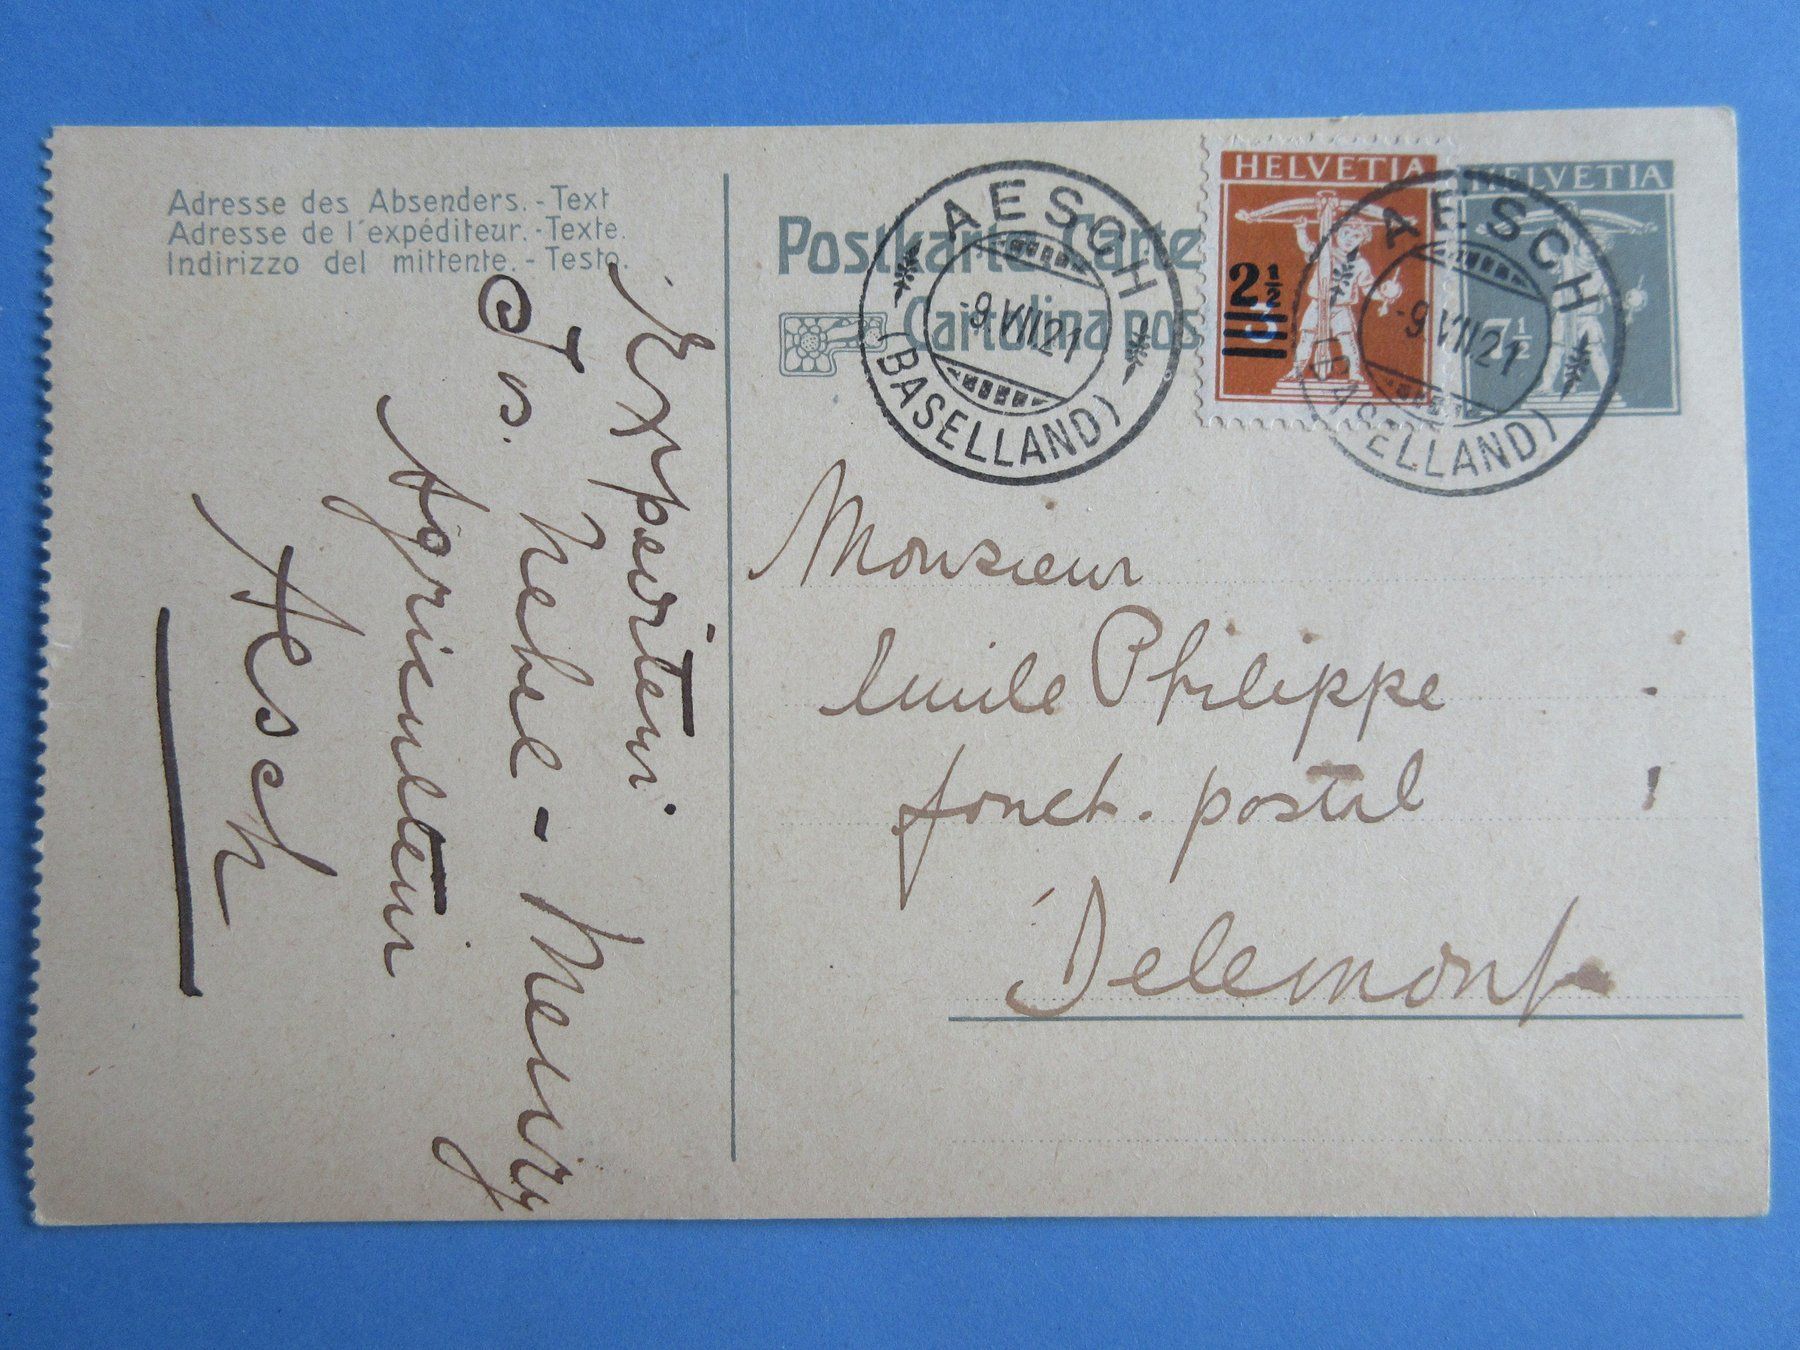 Adresse des Absenders. - Text
Adresse de l'expéditeur. - Texte.
Indirizzo del mittente. - Testo.
Postkarte Carte
Cartolina pos
AESCH
-9.VII.21
(BASELLAND)
HELVETIA
2½
HELVETIA
7½
AESCH
-9.VII.21
(BASELLAND)
Monsieur
Emile Philippe
fonct. postal
Delemont
Expediteur
Js. Nebel-Meury
Agriculteur
Aesch